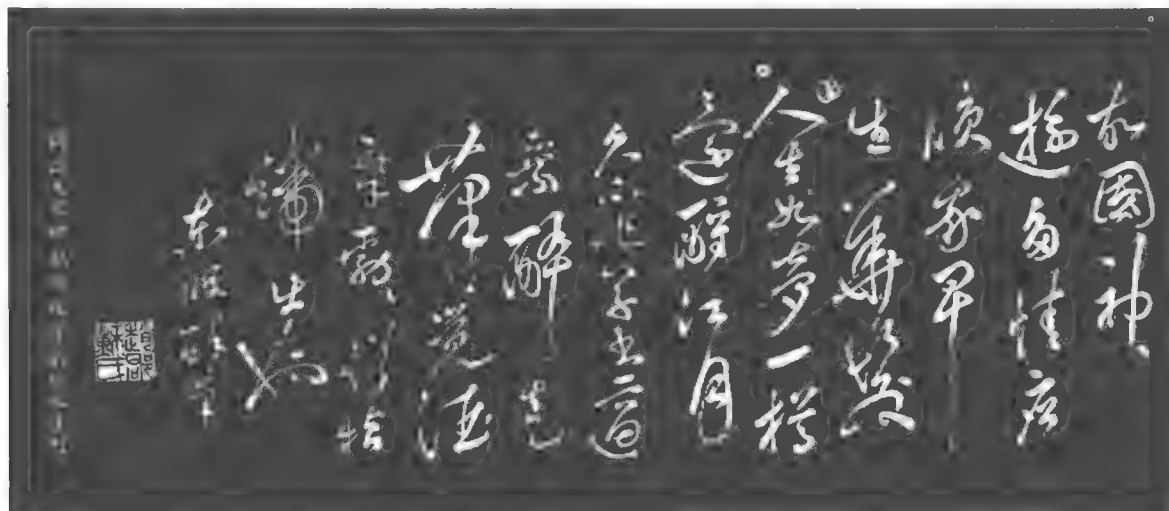 故國神
遊多情應
笑我早
生華髮
人生如夢一樽
還酹江月
久不作草書適
乘醉走
筆覺酒
氣勃勃從指
端出也
東坡醉筆